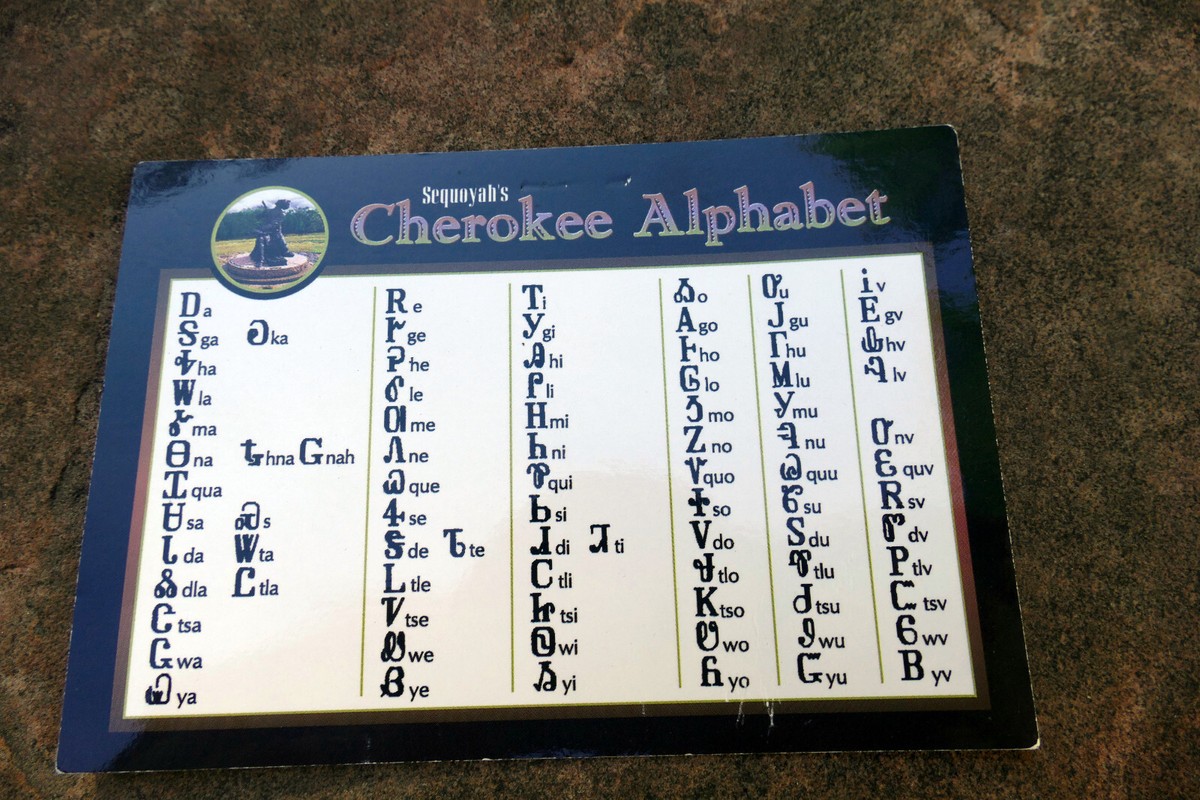 Sequoyah's
Cherokee Alphabet
Ꭰa Ꭱe Ꭲi Ꭳo Ꭴu Ꭵv
Ꭶga Ꭷka Ꭸge Ꭹgi Ꭺgo Ꭻgu Ꭼgv
Ꭽha Ꭾhe Ꭿhi Ꮀho Ꮁhu Ꮂhv
Ꮃla Ꮄle Ꮅli Ꮆlo Ꮇlu Ꮈlv
Ꮉma Ꮊme Ꮋmi Ꮌmo Ꮍmu
Ꮎna Ꮏhna Ꮐnah Ꮑne Ꮒni Ꮓno Ꮔnu Ꮕnv
Ꮖqua Ꮗque Ꮘqui Ꮙquo Ꮚquu Ꮛquv
Ꮜsa Ꮝs Ꮞse Ꮟsi Ꮠso Ꮡsu Ꮢsv
Ꮣda Ꮤta Ꮥde Ꮦte Ꮧdi Ꮨti Ꮩdo Ꮪdu Ꮫdv
Ꮬdla Ꮭtla Ꮮtle Ꮯtli Ꮰtlo Ꮱtlu Ꮲtlv
Ꮳtsa Ꮴtse Ꮵtsi Ꮶtso Ꮷtsu Ꮸtsv
Ꮹwa Ꮺwe Ꮻwi Ꮼwo Ꮽwu Ꮾwv
Ꮿya Ᏸye Ᏹyi Ᏺyo Ᏻyu Ᏼyv